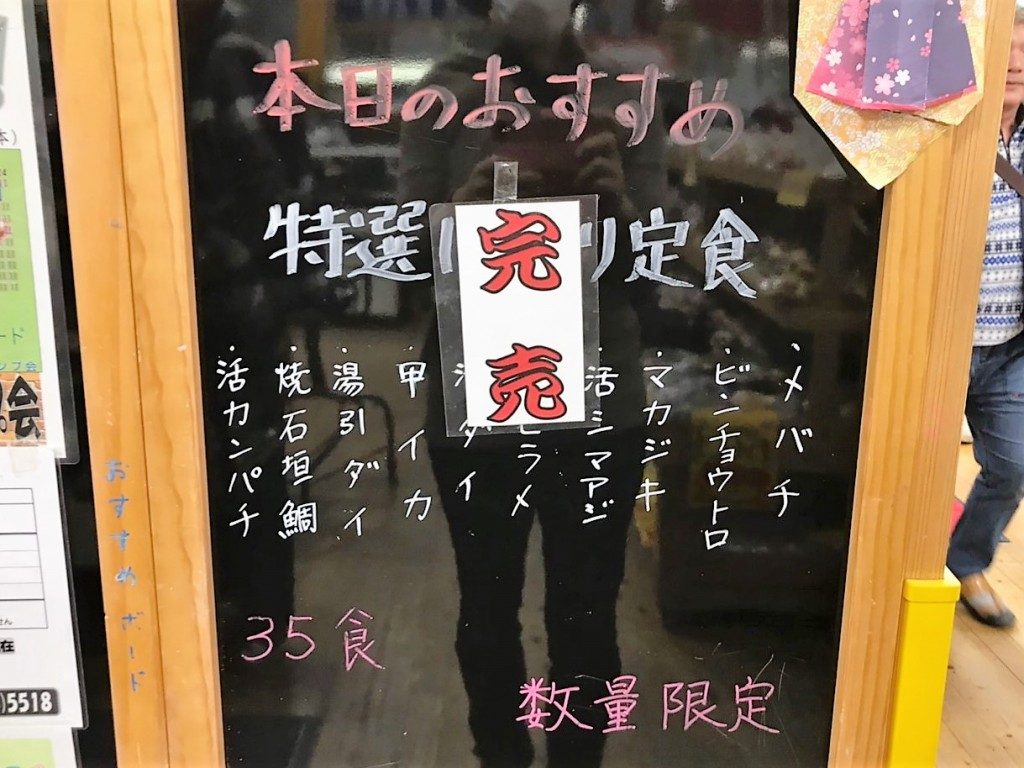 本日のおすすめ
特選 り定食
完売
・メバチ
・ビンチョウトロ
・マカジキ
・活シマアジ
ラメ
ダイ
・甲イカ
・湯引ダイ
・焼石垣鯛
・活カンパチ
35食
数量限定
おすすめボード
5518